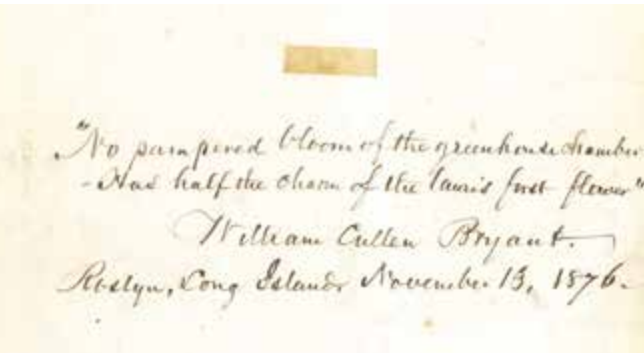 "No pampered bloom of the greenhouse chamber
- Has half the charm of the lawn's first flower"
William Cullen Bryant.
Roslyn, Long Island November 13, 1876.